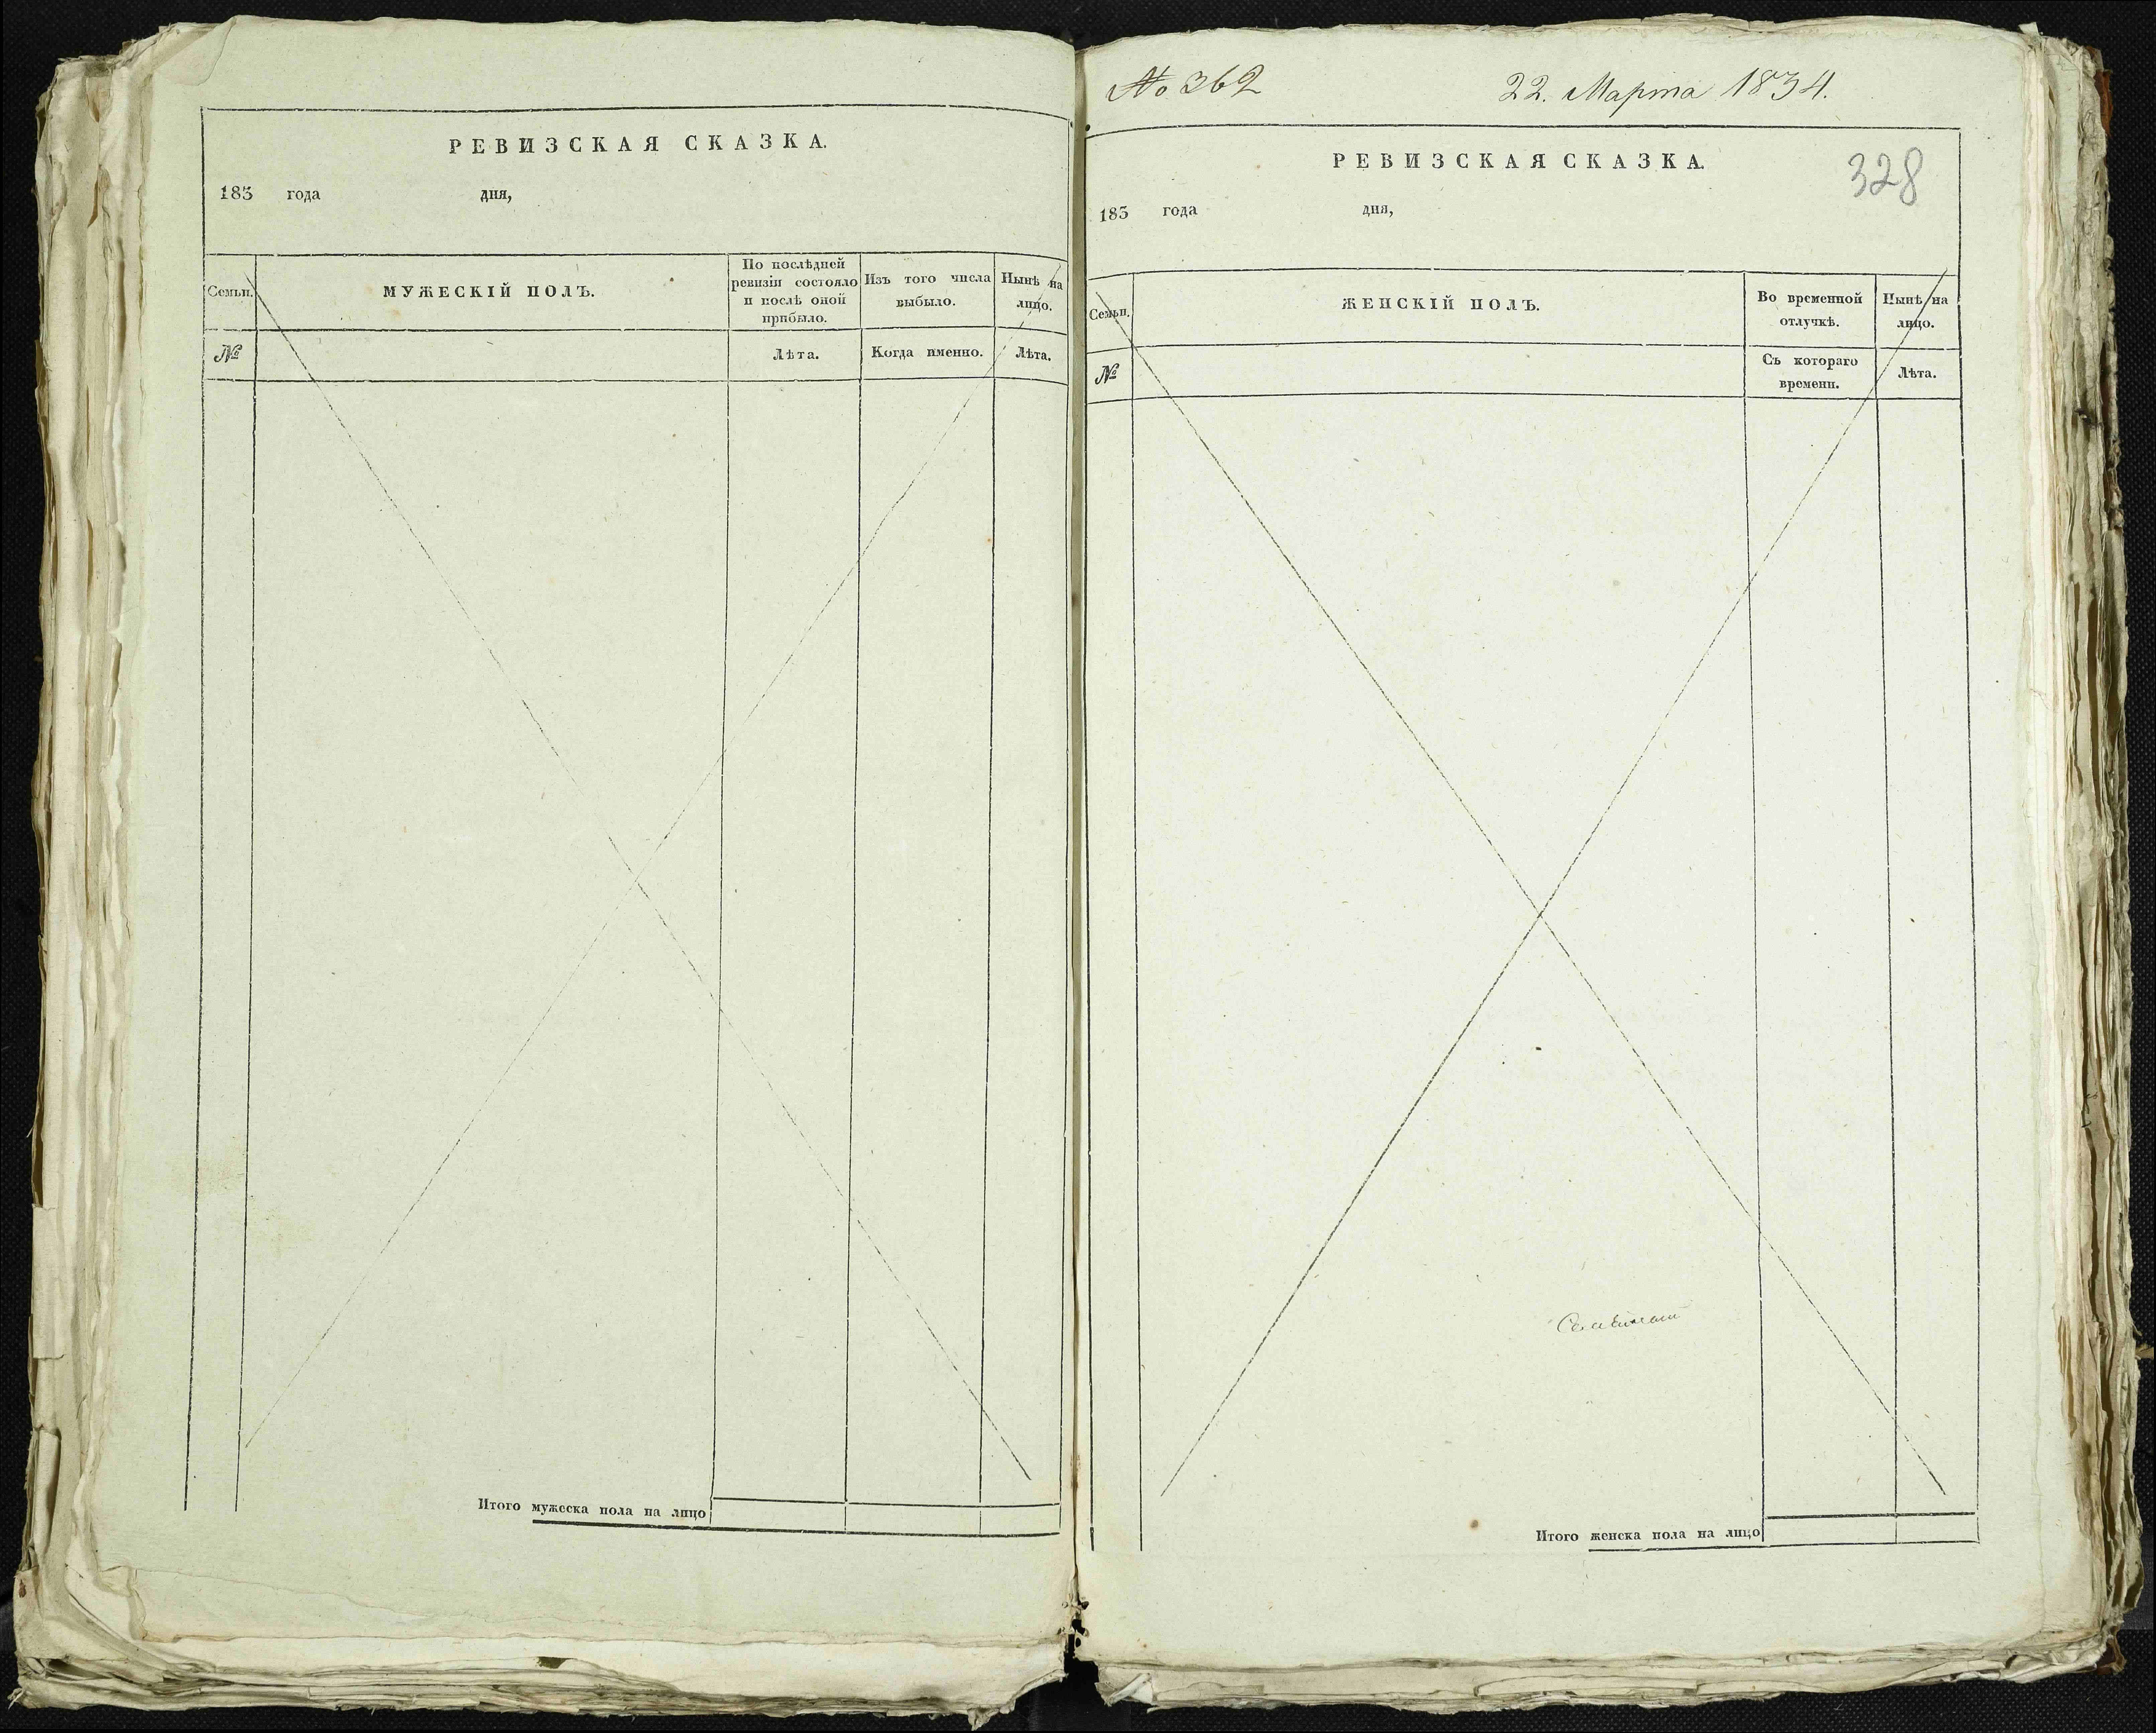 РЕВИЗСКАЯ СКАЗКА.
183 года дня,
Семьи.
МУЖЕСКІЙ ПОЛЪ.
По послѣдней
ревизіи состояло
и послѣ оной
прибыло.
Изъ того числа
выбыло.
Нынѣ на
лицо.
№
Лѣта.
Когда именно.
Лѣта.
Итого мужеска пола на лицо
№ 362
22. Марта 1834.
РЕВИЗСКАЯ СКАЗКА.
328
183 года дня,
Семьи.
ЖЕНСКІЙ ПОЛЪ.
Во временной
отлучкѣ.
Нынѣ на
лицо.
№
Съ котораго
времени.
Лѣта.
Итого женска пола на лицо